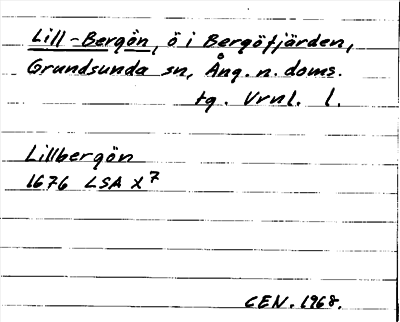 Lill-Bergön, ö i Bergöfjärden,
Grundsunda sn, Ång. n. doms.
tg. Vrnl. l.
Lillbergön
1676 LSA X 7
CEN. 1968.